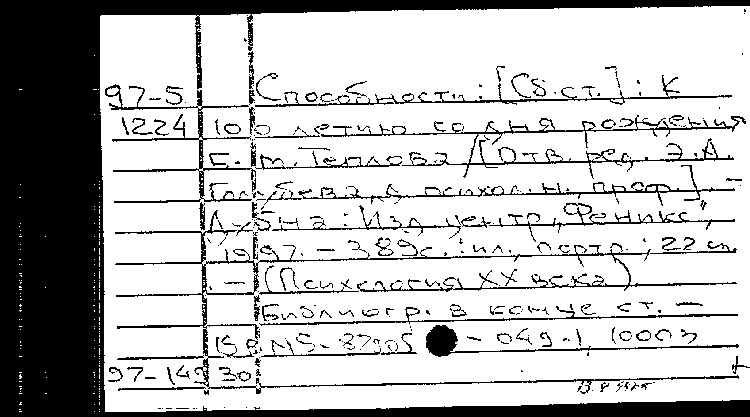 97-5 Способности: [Сб. ст.] : К
1224 100 летию со дня рождения
Б. М. Теплова / [Отв. ред. Э. А.
Голубева, д. психол. н., проф.]. —
Дубна : Изд. центр "Феникс",
1997. - 389с. : ил., портр. ; 22 см.
. — (Психология XX века).
Библиогр. в конце ст. —
- 049-1, 1000э
97-149 30